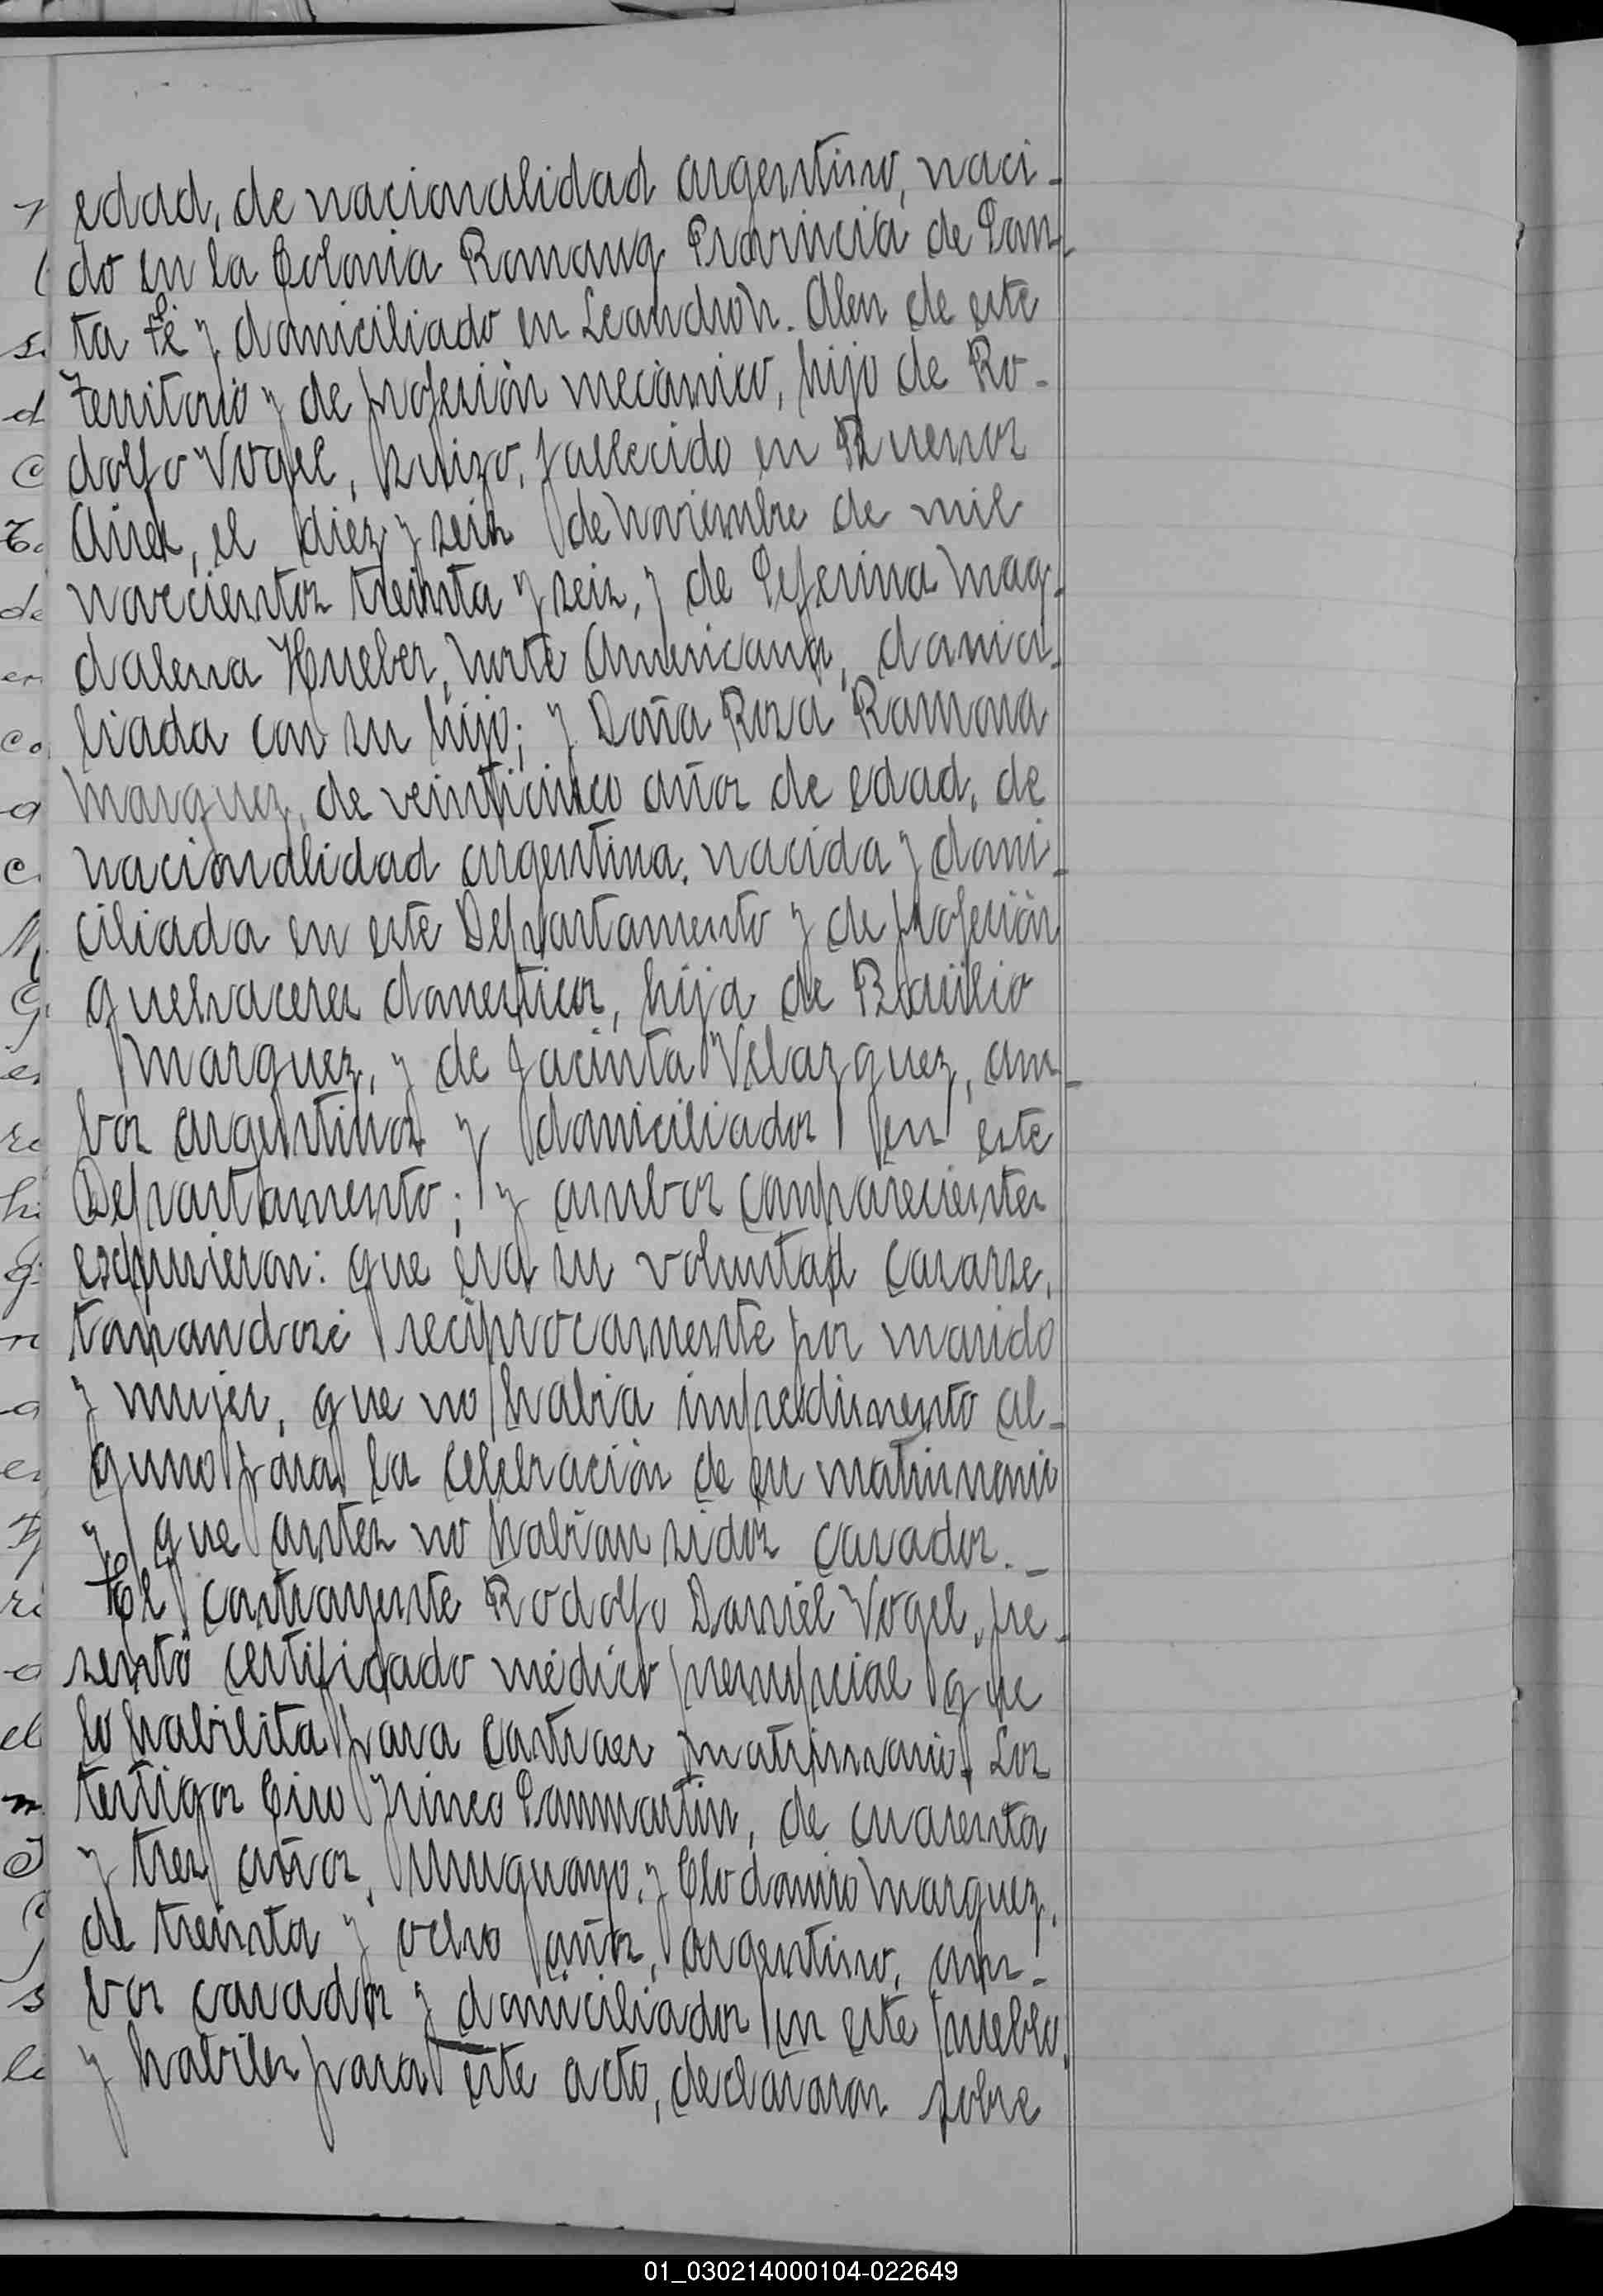 edad, de nacionalidad argentino, naci-
do en la Colonia Romang Provincia de San-
ta Fé y domiciliado en Leandro N. Alen de este
Territorio y de profesión mecánico, hijo de Ro-
dolfo Vogel, suizo, fallecido en Buenos
Aires, el diez y seis de Noviembre de mil
novecientos treinta y seis, y de Seferina Mag-
dalena Hueber, Norte Americana, domici-
liada con su hijo; y Doña Rosa Ramona
Marquez, de veinticinco años de edad, de
nacionalidad argentina, nacida y domi-
ciliada en este Departamento y de profesión
quehaceres domesticos, hija de Braulio
Marquez, y de Jacinta Velazquez, am-
bos argentinos y domiciliados en este
Departamento; y ambos comparecientes
expusieron: que era su voluntad casarse,
tomandose reciprocamente por marido
y mujer, que no habia impedimento al-
guno para la celebración de su matrimonio
y que antes no habian sidos casados._
El contrayente Rodolfo Daniel Vogel, pre-
sentó certificado médico prenupcial que
lo habilita para contraer matrimonio. Los
testigos Ciro Sanmartin, de cuarenta
y tres años, Uruguayo, y Clodomiro Marquez,
de treinta y ocho años, argentino, am-
bos casados y domiciliados en este pueblo,
y habiles para este acto, declararon sobre
01_030214000104-022649